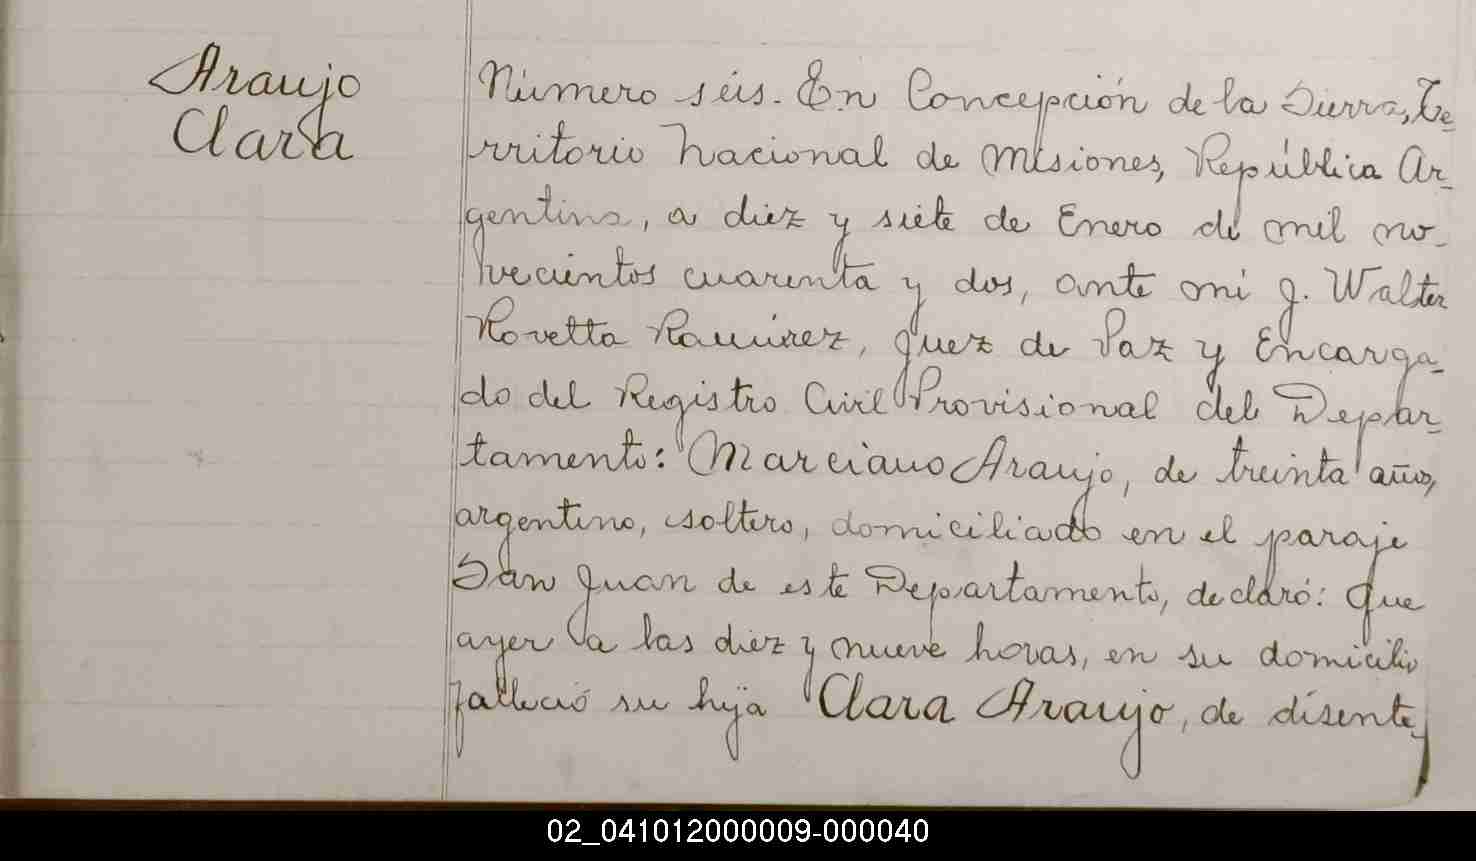 Araujo
Clara
Número seis. En Concepción de la Sierra, Te-
rritorio Nacional de Misiones, República Ar-
gentina, a diez y siete de Enero de mil no-
vecientos cuarenta y dos, ante mi J. Walter
Rovetta Ramírez, Juez de Paz y Encarga-
do del Registro Civil Provisional del Depar-
tamento: Marciano Araujo, de treinta años,
argentino, soltero, domiciliado en el paraje
San Juan de este Departamento, declaró: Que
ayer a las diez y nueve horas, en su domicilio
falleció su hija Clara Araujo, de disente-
02_041012000009-000040